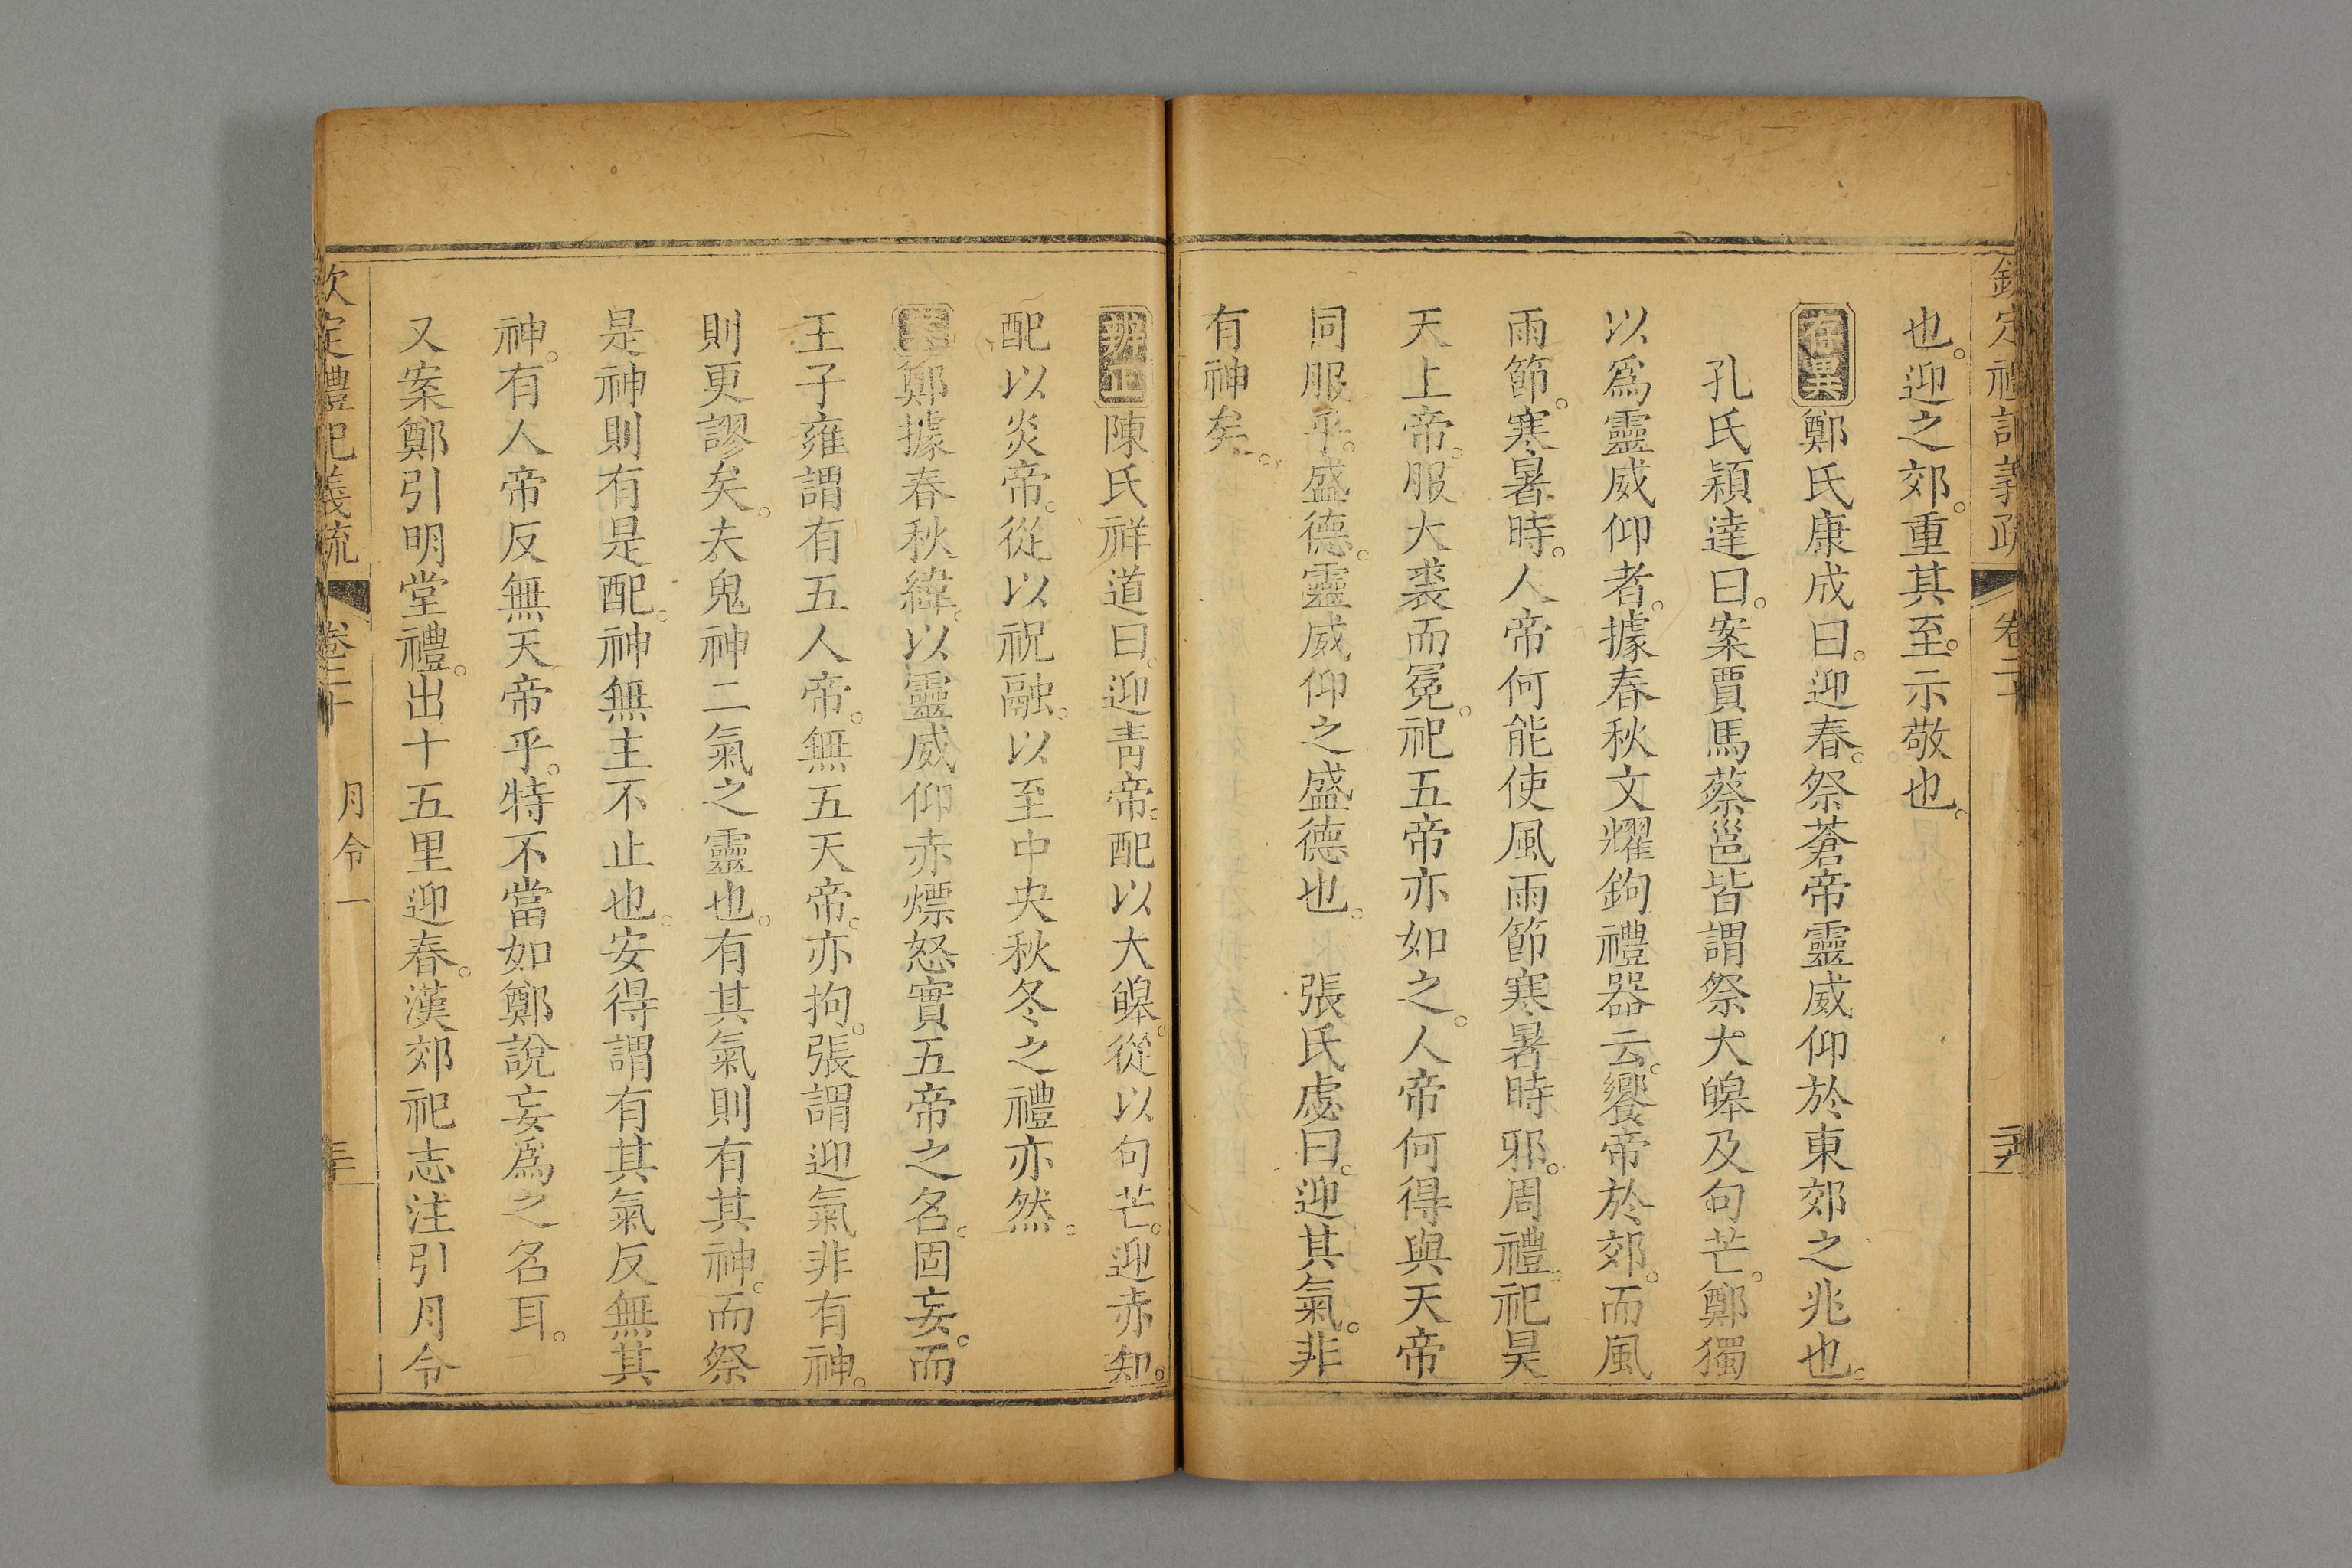 欽定禮記義疏 卷二十
也。迎之郊。重其至。示敬也。
存異鄭氏康成曰。迎春。祭蒼帝靈威仰於東郊之兆也。
孔氏穎達曰。案賈馬蔡邕皆謂祭大皞及句芒。鄭獨
以爲靈威仰者。據春秋文耀鉤禮器云。饗帝於郊。而風
雨節。寒暑時。人帝何能使風雨節寒暑時邪。周禮。祀昊
天上帝。服大裘而冕。祀五帝亦如之。人帝何得與天帝
同服乎。盛德。靈威仰之盛德也。 張氏虙曰。迎其氣。非
有神矣。
辨正陳氏祥道曰。迎靑帝。配以大皞。從以句芒。迎赤
配以炎帝。從以祝融。以至中央秋冬之禮亦然。
案鄭據春秋緯。以靈威仰赤熛怒實五帝之名。固妄。而
王子雍謂有五人帝。無五天帝。亦拘。張謂迎氣非有神。
則更謬矣。夫鬼神二氣之靈也。有其氣則有其神。而祭
是神則有是配。神無主不止也。安得謂有其氣反無其
神。有人帝反無天帝乎。特不當如鄭說妄爲之名耳。
又案鄭引明堂禮。出十五里迎春。漢郊祀志注引月令
欽定禮記義疏 卷二十 月令一